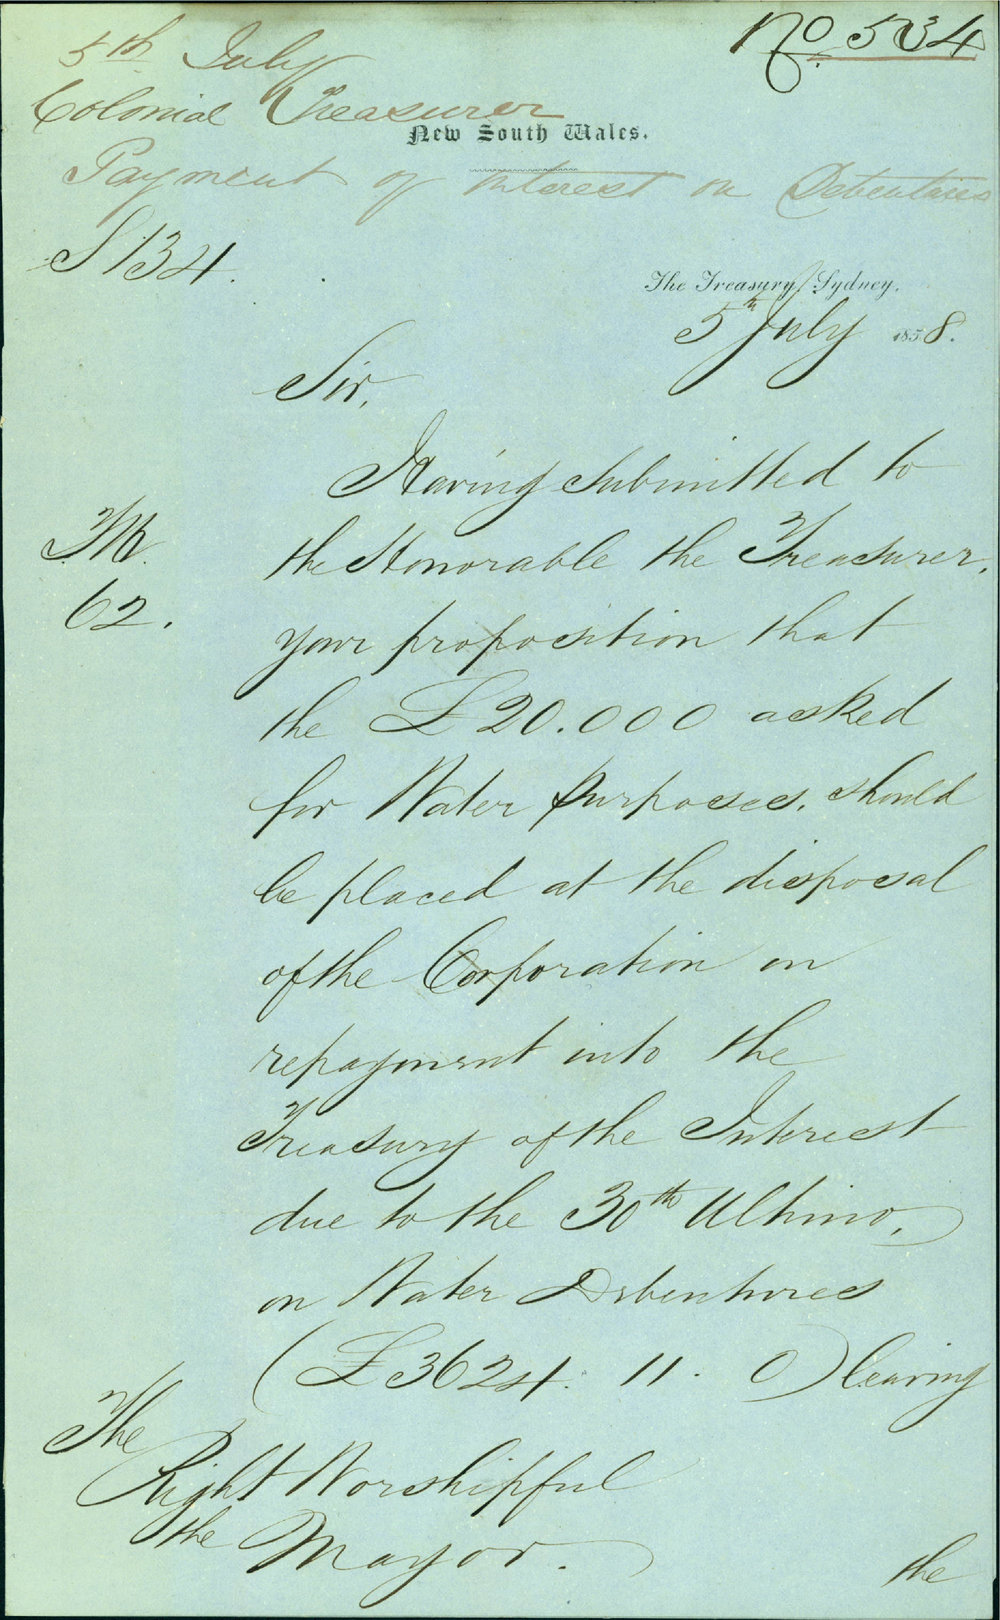 No. 534
5th July
Colonial Treasurer
New South Wales.
Payment of Interest on Debentures
S 134.
The Treasury, Sydney,
5th July 1858.
Sir,
Having submitted to
the Honorable the Treasurer,
M
62.
your proposition that
the £20.000 asked
for Water purposes, should
be placed at the disposal
of the Corporation on
repayment into the
Treasury of the Interest
due to the 30th Ultimo,
on Water Debentures
(£3624. 11. 0) leaving
The
Right Worshipful
the Mayor.
the